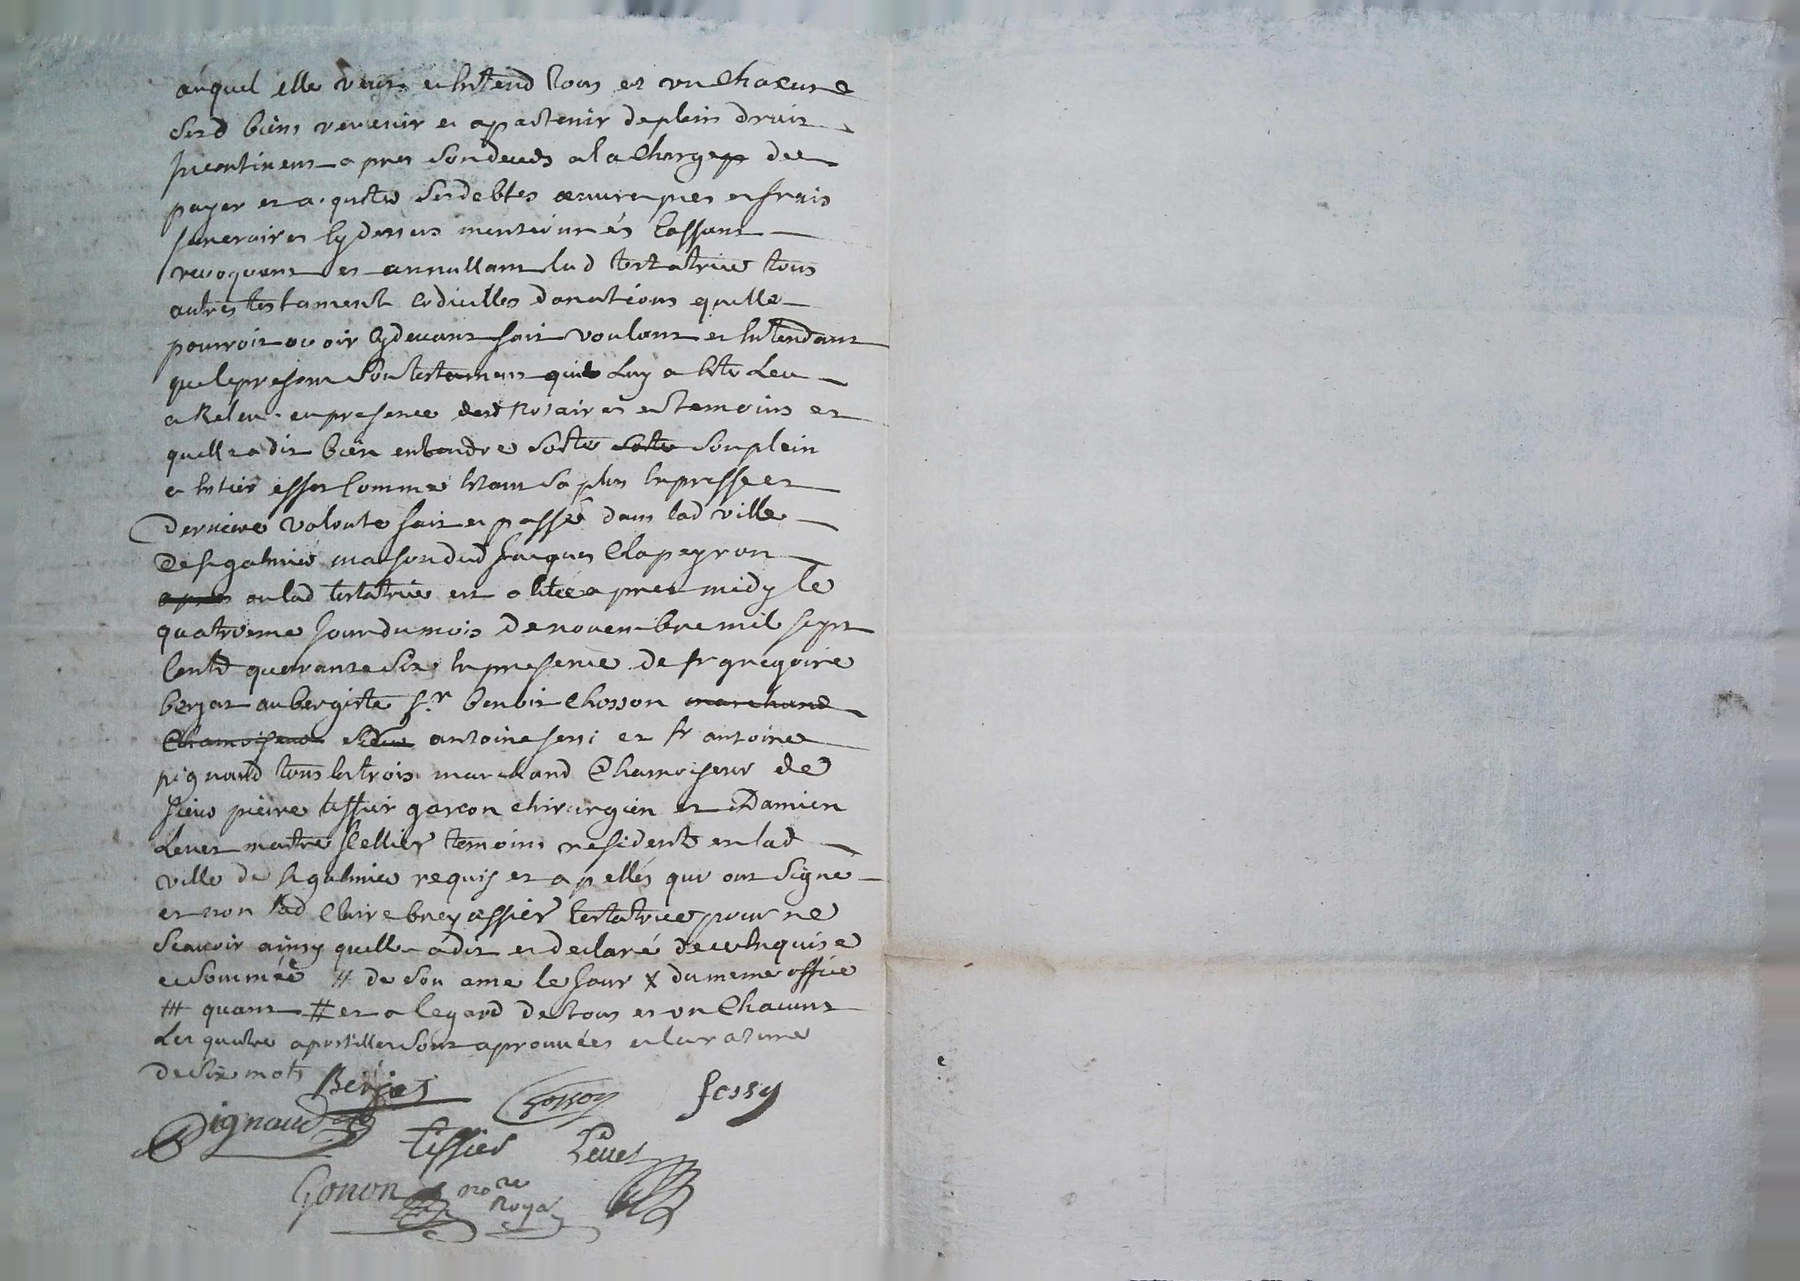 auquel elle veut et Intend tous et un chacuns
sesd biens revenir et apartenir deplein droit
Incontinent apres son deceds a la charge de
payer et aquiter ses debtes œuvres pies et frais
funeraires cy dessus mentionnés Cassant
revoquant et annullant lad testatrice tous
autres testament codicilles donations quelle
pourroit avoir cy devant fait voulant et Intendant
que le present son testament quil luy a été leu
a Releu en presence desd Notaires et temoins et
quelle a dit bien entendre sorte sorte son plein
et entier effet comme étant sa plus expresse et
derniere volonté fait et passé dans lad ville
de st galmier maison dud Jacques Clapeyron
apres ou lad testatrice est alitée apres midy le
quatrieme Jour du mois de novembre mil sept
Cents quarante six en presence de sr gregoire
berjat aubergiste sr benoit Chosson marchand
Chamoiseur sieur antoine fessi et sr antoine
pignaud tous les trois marchand Chamoiseur de
sieur pierre tissier garçon chirurgien et Damien
Levet maitre sellier temoins residents en lad
ville de st galmier requis et apellés qui ont signé
et non lad Claire breyassier testatrice pour ne
scavoir ainsy quelle a dit et declaré de ce enquise
et sommée # de son ame le Jour x du meme office
# quant # et a legard de tous et un Chacuns
Les quatre apostilles sont aprouvées et la rature
de six mots
Berjat Chosson fessy
Pignaud tissier Levet
Gonon nore
Royal